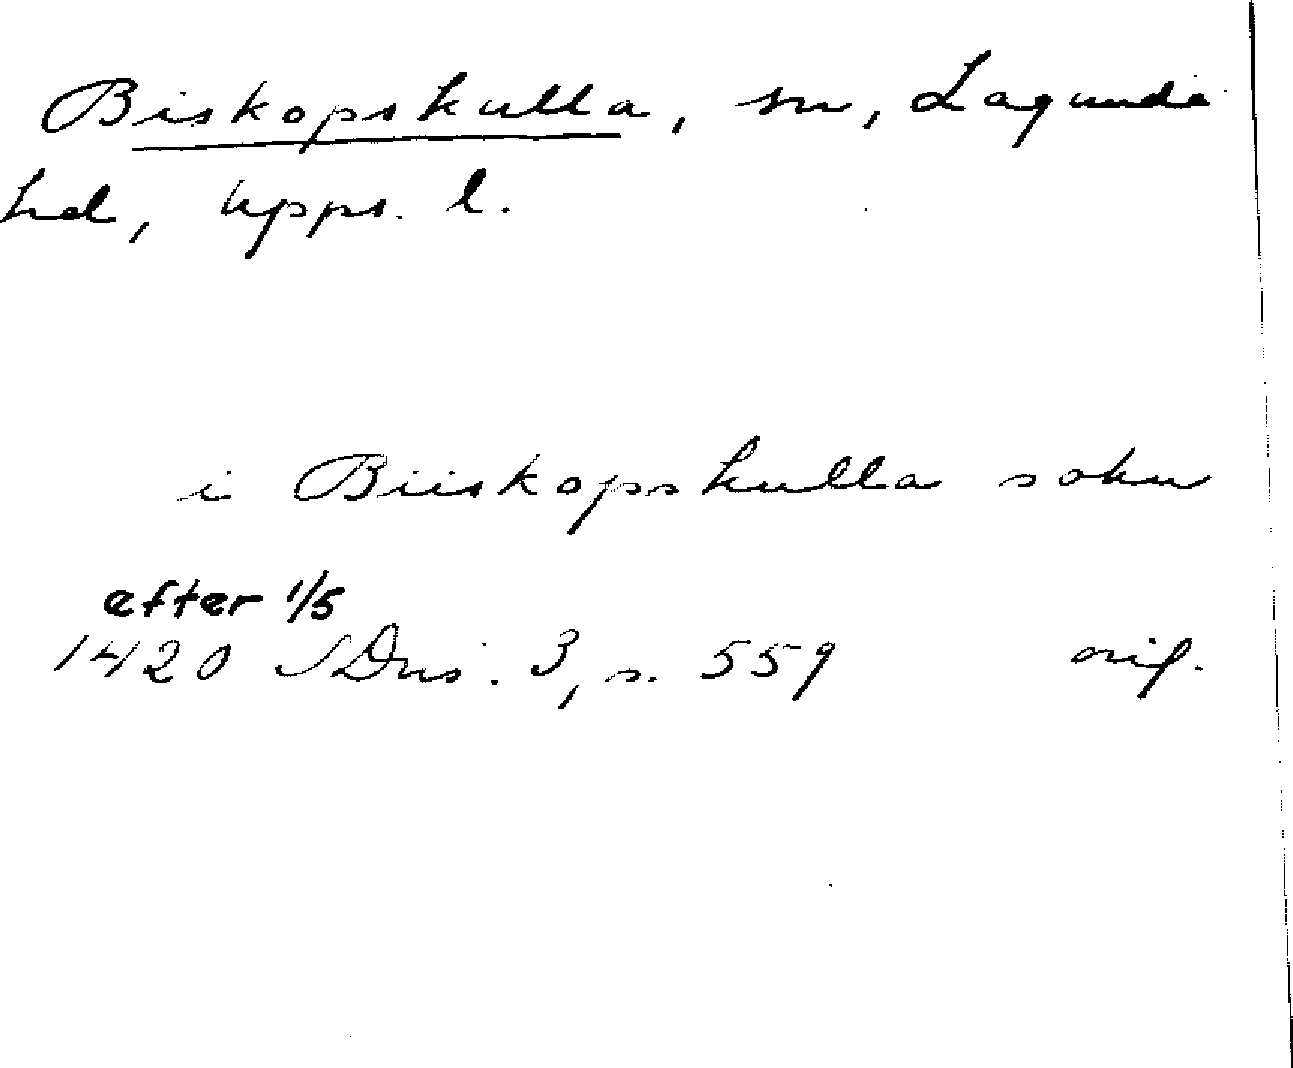 Biskopskulla, sn, Lagunda
hd, Upps. l.
i Biiskopskulla sokn
efter 1/5
1420 SDns. 3, s. 559 orig.